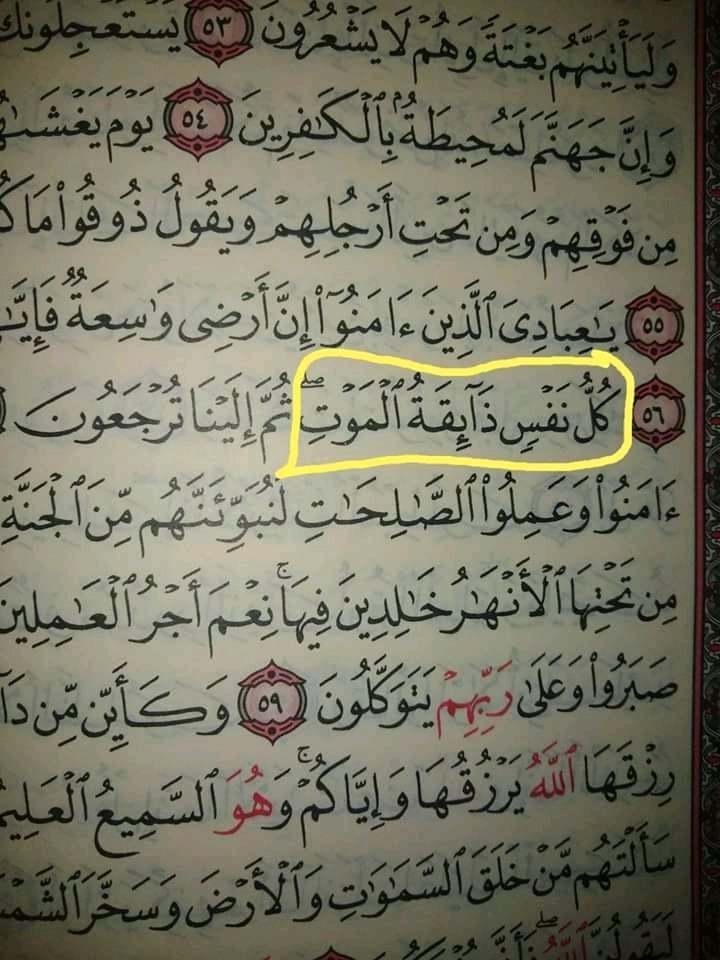 وَلَيَأْتِيَنَّهُم بَغْتَةً وَهُمْ لَا يَشْعُرُونَ ٥٣ يَسْتَعْجِلُونَكَ
وَإِنَّ جَهَنَّمَ لَمُحِيطَةٌۢ بِٱلْكَٰفِرِينَ ٥٤ يَوْمَ يَغْشَىٰهُ
مِن فَوْقِهِمْ وَمِن تَحْتِ أَرْجُلِهِمْ وَيَقُولُ ذُوقُوا۟ مَا كُ
٥٥ يَٰعِبَادِىَ ٱلَّذِينَ ءَامَنُوٓا۟ إِنَّ أَرْضِى وَٰسِعَةٌ فَإِيَّٰ
٥٦ كُلُّ نَفْسٍ ذَآئِقَةُ ٱلْمَوْتِ ۖ ثُمَّ إِلَيْنَا تُرْجَعُونَ
ءَامَنُوا۟ وَعَمِلُوا۟ ٱلصَّٰلِحَٰتِ لَنُبَوِّئَنَّهُم مِّنَ ٱلْجَنَّةِ
مِن تَحْتِهَا ٱلْأَنْهَٰرُ خَٰلِدِينَ فِيهَا ۚ نِعْمَ أَجْرُ ٱلْعَٰمِلِينَ
صَبَرُوا۟ وَعَلَىٰ رَبِّهِمْ يَتَوَكَّلُونَ ٥٩ وَكَأَيِّن مِّن دَا
رِزْقَهَا ٱللَّهُ يَرْزُقُهَا وَإِيَّاكُمْ ۚ وَهُوَ ٱلسَّمِيعُ ٱلْعَلِيمُ
سَأَلْتَهُم مَّنْ خَلَقَ ٱلسَّمَٰوَٰتِ وَٱلْأَرْضَ وَسَخَّرَ ٱلشَّمْسَ
لَيَقُولُنَّ ٱللَّهُ ۖ